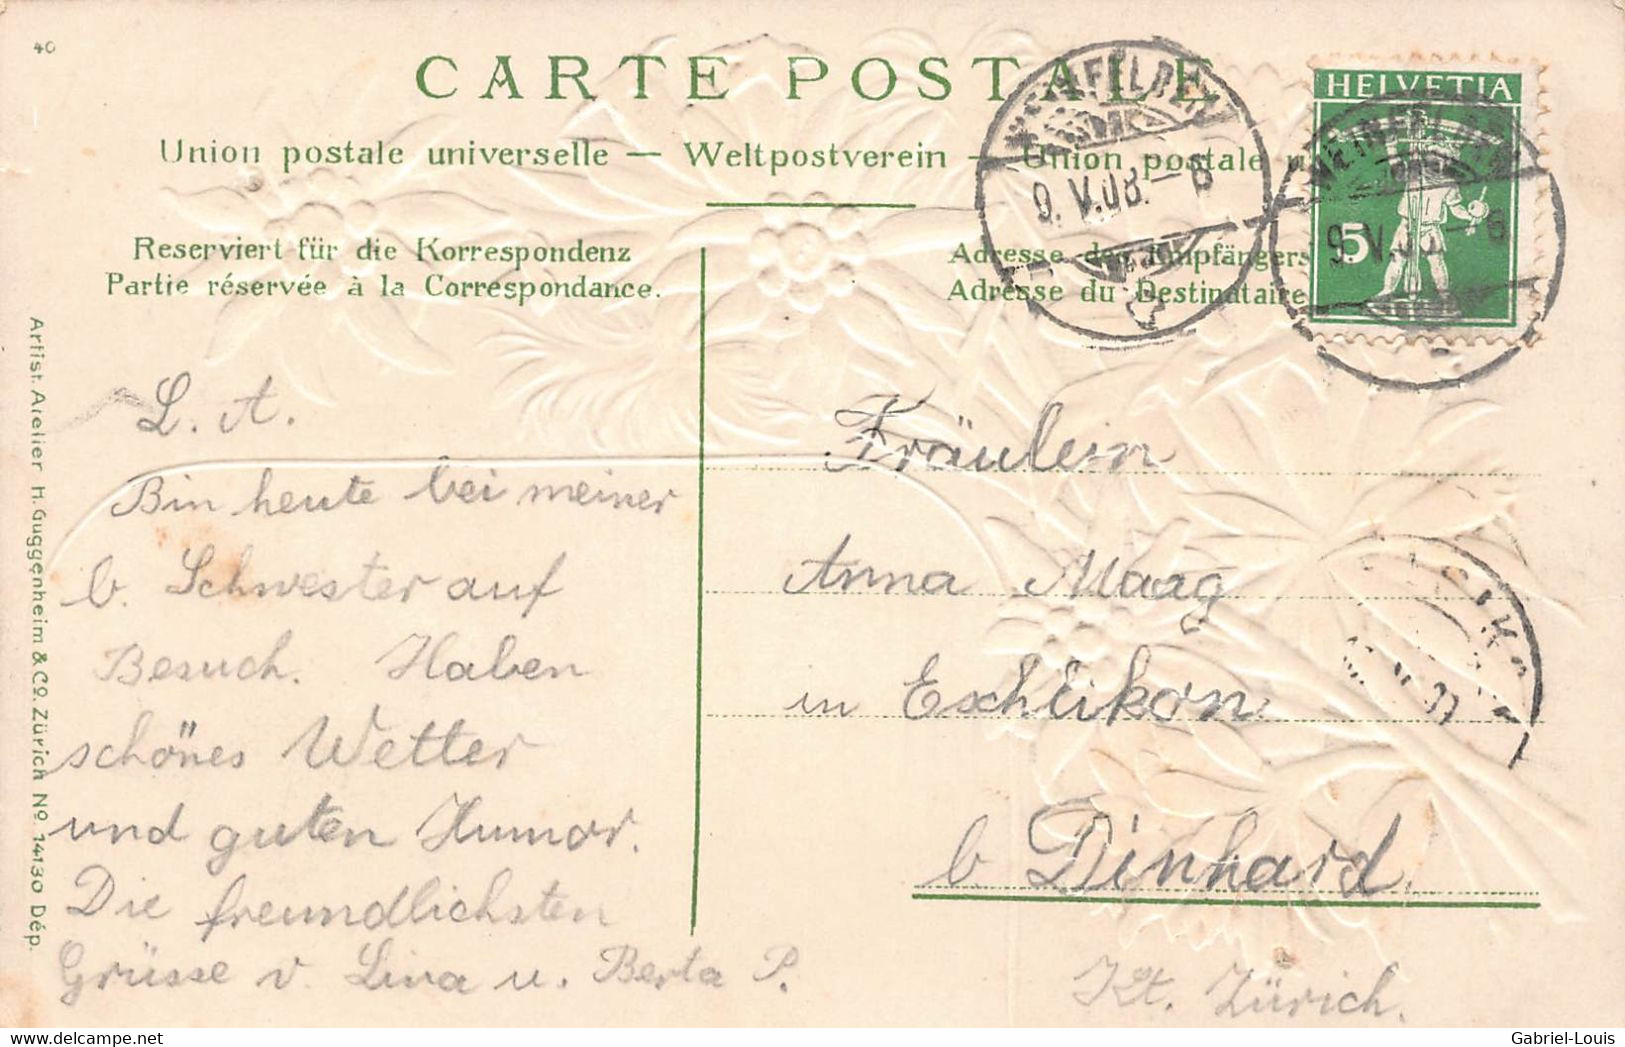 40
CARTE POSTALE
Union postale universelle — Weltpostverein — Union postale
Reserviert für die Korrespondenz
Partie réservée à la Correspondance.
Adresse des Empfängers
Adresse du Destinataire
HELVETIA
5
WEINFELDEN
9. V. 08. — 6
WEINFELDEN
9. V. 08. — 6
Artist. Atelier H. Guggenheim & Co. Zürich No. 14130 Dép.
L. A.
Bin heute bei meiner
b. Schwester auf
Besuch. Haben
schönes Wetter
und guten Humor.
Die freundlichsten
Grüsse v. Lina u. Berta P.
Fräulein
Anna Maag
in Eschlikon
b Dinhard.
Kt. Zürich.
Gabriel-Louis